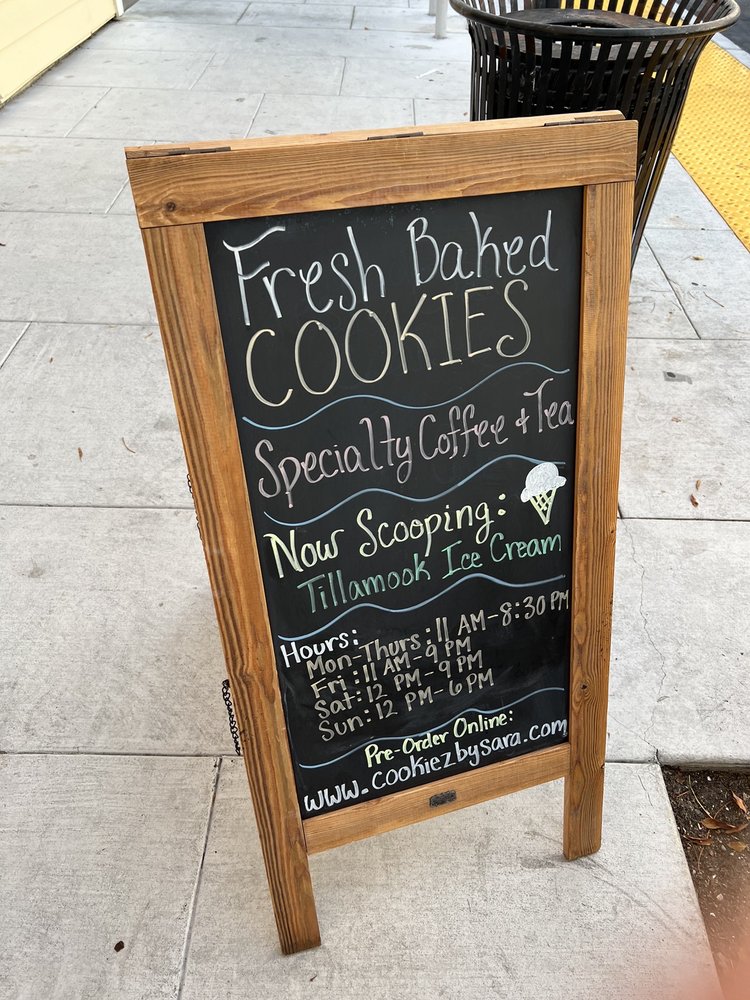 Fresh Baked
COOKIES
Specialty Coffee & Tea
Now Scooping:
Tillamook Ice Cream
Hours:
Mon-Thurs: 11 AM-8:30 PM
Fri: 11 AM-9 PM
Sat: 12 PM-9 PM
Sun: 12 PM-6 PM
Pre-Order Online:
www.cookiezbysara.com